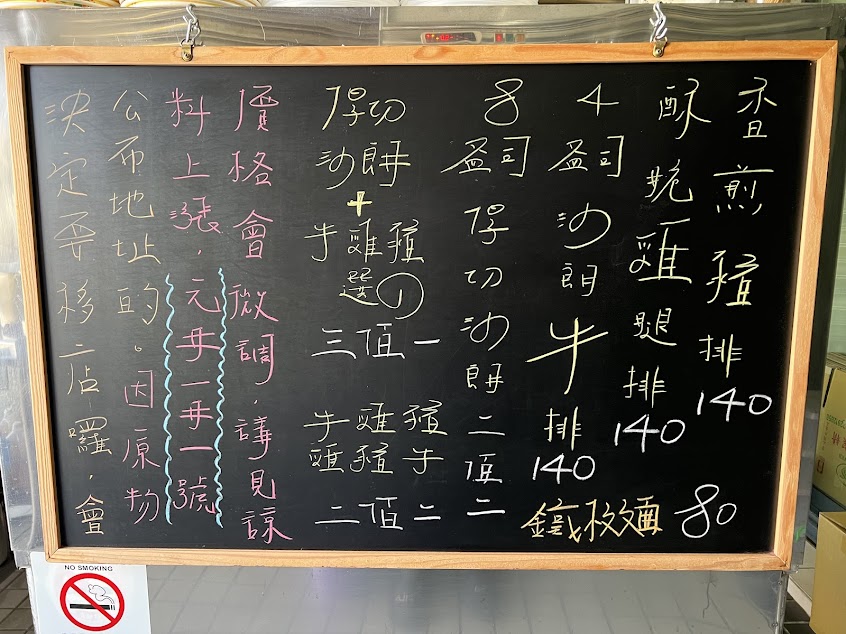 香煎豬排140
酥脆雞腿排140
4盎司沙朗牛排140
8盎司厚切沙朗二佰二
厚切
沙朗
+
牛雞豬
選①
三佰一
牛雞豬
雞豬牛
二佰二
鐵板麵 80
決定要移二店囉，會
公布地址的。因原物
料上漲，元一一號
價格會微調，請見諒
NO SMOKING